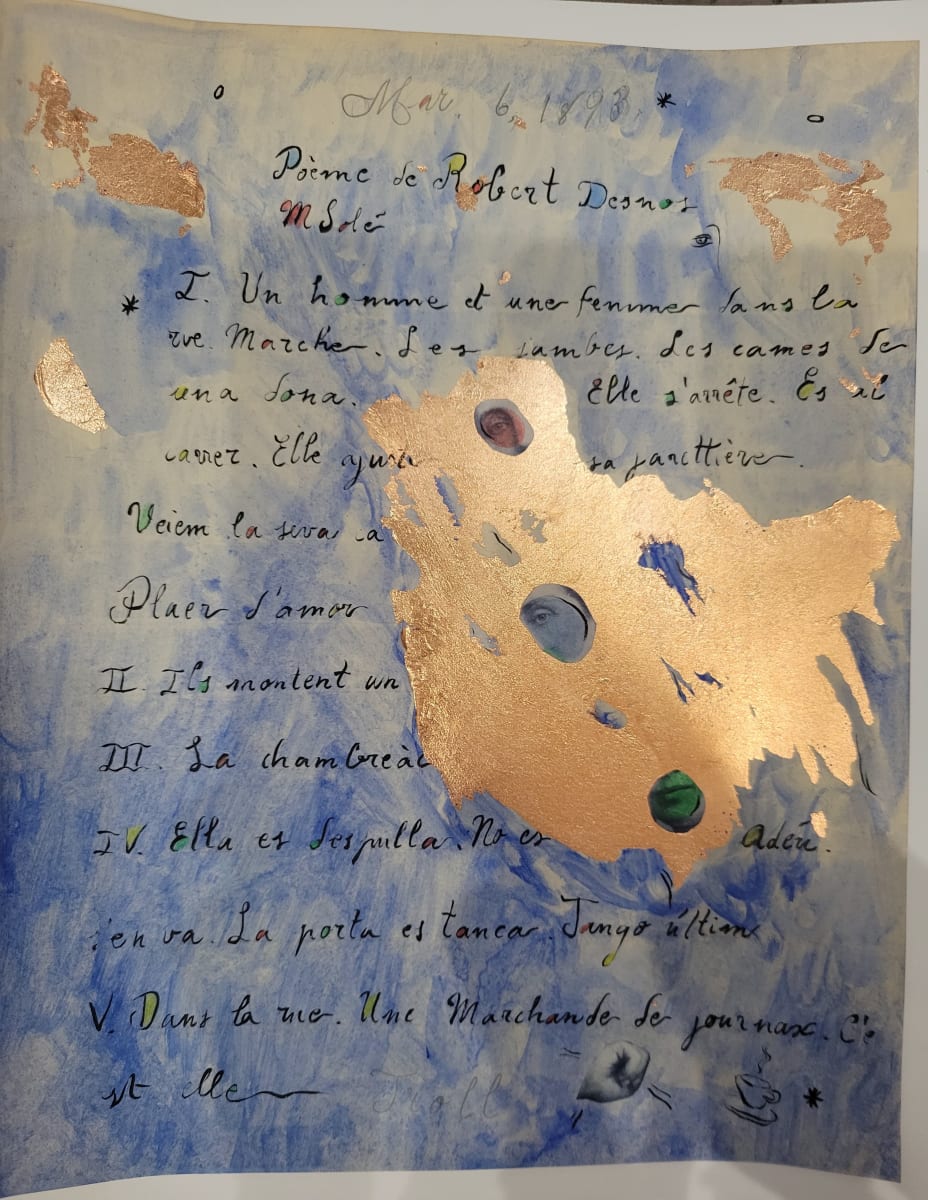 Mar. 6, 1893.
Poème de Robert Desnos
MSolé
I. Un homme et une femme dans la
rue. Marche. Les jambes. Les cames de
una dona. Elle s'arrête. Es al
carrer. Elle ajusta sa jarettière.
Veiem la seva ca
Plaer d'amor
II. Ils montent un
III. La chambre
IV. Ella es despulla. No es Adéu.
en va. La porta es tanca. Tango últim
V. Dans la rue. Une Marchande de journax. C'e
st elle